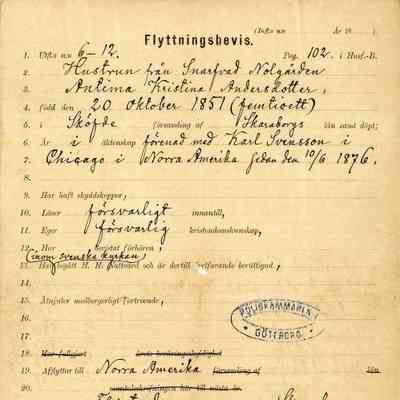 (Inflts nn år 18 )
Flyttningsbevis.
1. Utfts nn 6-12. Pag. 102. i Husf.-B.
2. Hustrun från Snarfvad Nolgården
3. Antima Kristina Andersdotter,
4. född den 20 Oktober 1851 (femtioett)
5. i Sköfde församling af Skaraborgs län samt döpt;
6. Är i äktenskap förenad med Karl Svensson i
7. Chicago i Norra Amerika sedan den 10/6 1876.
8.
9. Har haft skyddskoppor,
10. Läser försvarligt innantill,
11. Eger försvarlig kristendomskunskap,
12. Har bevistat förhören,
(inom svenska kyrkan)
13. Har begått H. H. Nattvard och är dertill fortfarande berättigad,
14.
15. Åtnjuter medborgerligt förtroende,
16.
17.
POLISKAMMAREN I
GÖTEBORG.
18. Har fullgjort årets beväringsskyldighet
19. Afflyttar till Norra Amerika församling af län
20. mantalsskrifningen här till nästa år.